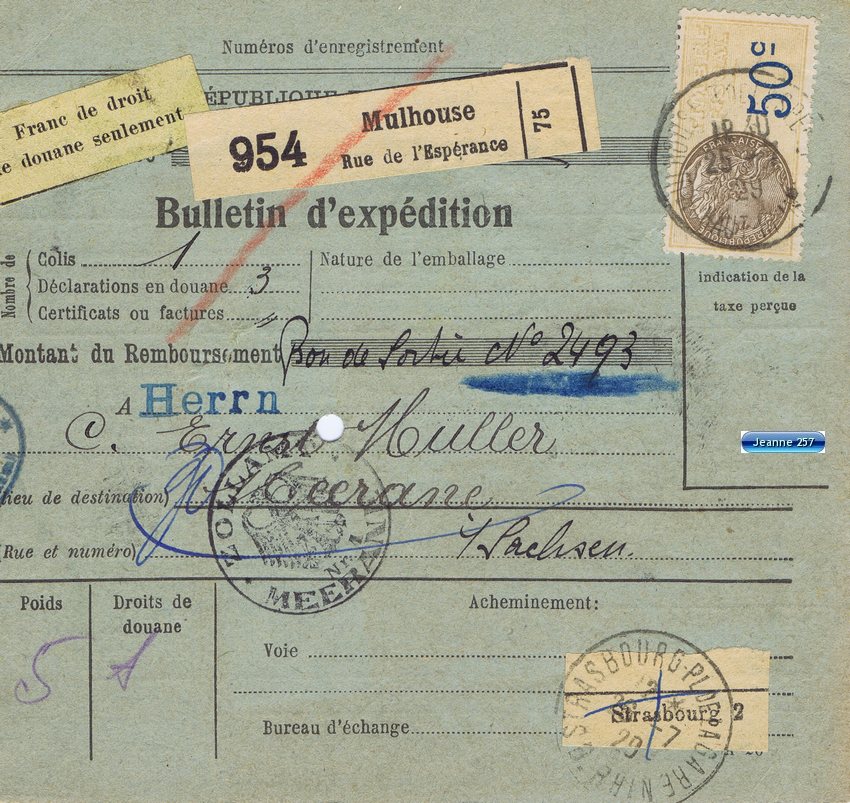 Numéros d'enregistrement
Franc de droit
de douane seulement
ÉPUBLIQUE
954
Mulhouse
Rue de l'Espérance
75
50c
FRANÇAISE
RÉPUBLIQUE
25
Bulletin d'expédition
Nombre de
Colis 1
Déclarations en douane 3
Certificats ou factures "
Nature de l'emballage
indication de la
taxe perçue
Montant du Remboursement Bon de Sortie N° 2493
A Herrn
C. Ernst Müller
Jeanne 257
lieu de destination) Meerane
(Rue et numéro) i/Sachsen.
ZOLLAMT
Nr. 1
MEERANE
Poids
Droits de
douane
5
Acheminement:
Voie
Bureau d'échange
STRASBOURG-PL. DE LA GARE
Strasbourg 2